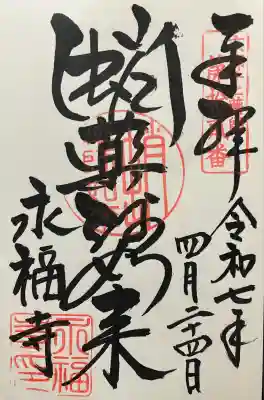 奉拝
令和七年
四月二十四日
蛸薬師如来
永福寺
永福
寺印